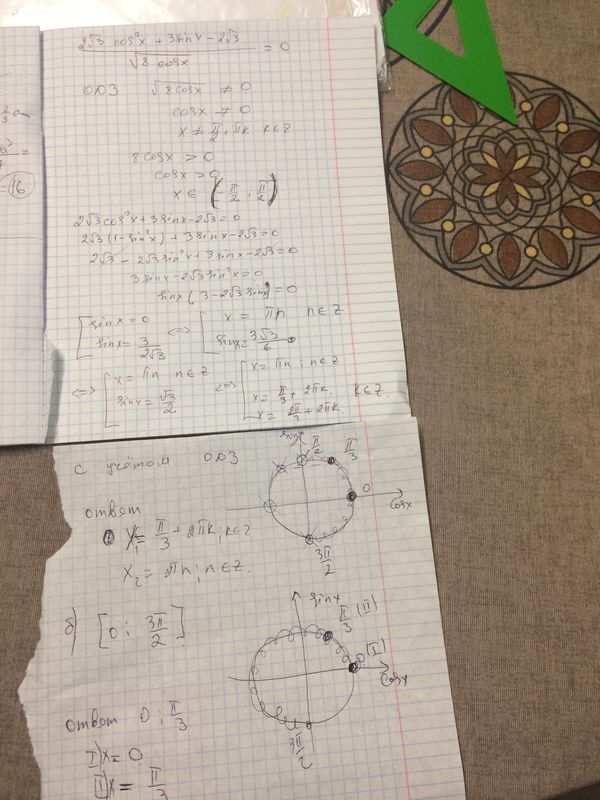 2√3 cos²x + 3sinx − 2√3 / √8 cosx = 0
ОДЗ √8cosx ≠ 0
cosx ≠ 0
x ≠ π/2 + πk k∈Z
8cosx > 0
cosx > 0
x ∈ (−π/2 ; π/2)
2√3cos²x + 3sinx − 2√3 = 0
2√3 (1−sin²x) + 3sinx − 2√3 = 0
2√3 − 2√3sin²x + 3sinx − 2√3 = 0
3sinx − 2√3sin²x = 0
sinx (3 − 2√3 sinx) = 0
[ sinx = 0 <=> [ x = πn n∈Z
sinx = 3/2√3 sinx = 3√3/6
<=> [ x = πn n∈Z <=> [ x = πn ; n∈Z
sinx = √3/2 x = π/3 + 2πk k∈Z
x = 2π/3 + 2πk
16
с учётом ОДЗ
sinx π/2 π/3 0 cosx 3π/2
ответ
x₁ = π/3 + 2πk ; k∈Z
x₂ = πn ; n∈Z.
б) [0 ; 3π/2]
sinx π/3 (II) 0 (I) cosx 3π/2
ответ 0 ; π/3
I) x = 0
II) x = π/3